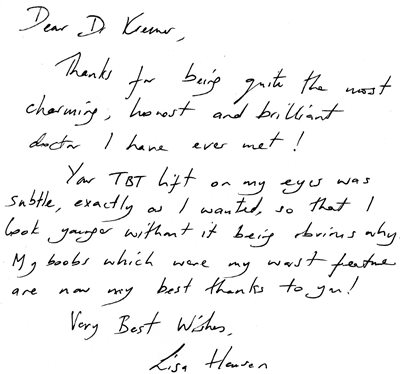 Dear Dr Kremer,
Thanks for being quite the most
charming, honest and brilliant
doctor I have ever met!
Your TBT lift on my eyes was
subtle, exactly as I wanted, so that I
look younger without it being obvious why.
My boobs which were my worst feature
are now my best thanks to you!
Very Best Wishes,
Lisa Hansen